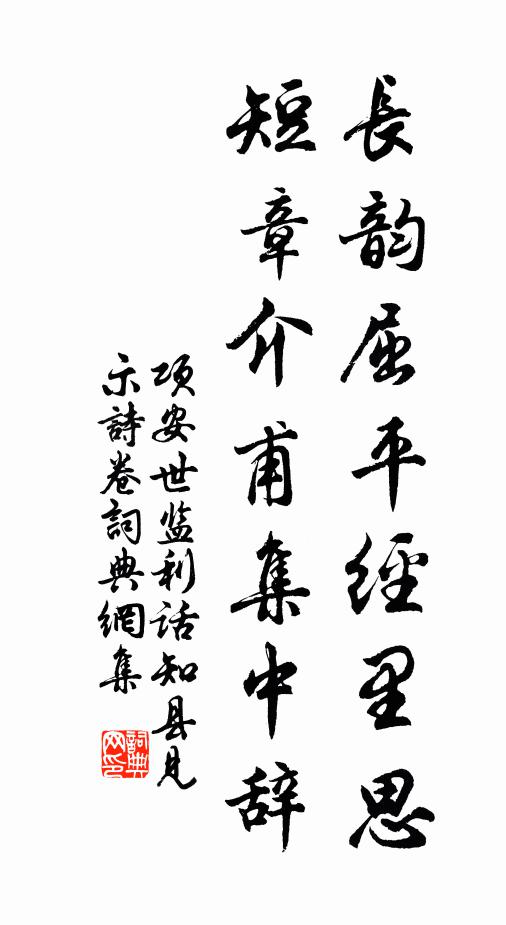 長韵屈平經里思
短章介甫集中辞
项安世监利话知县見
示詩卷詞典網集
詞典网印